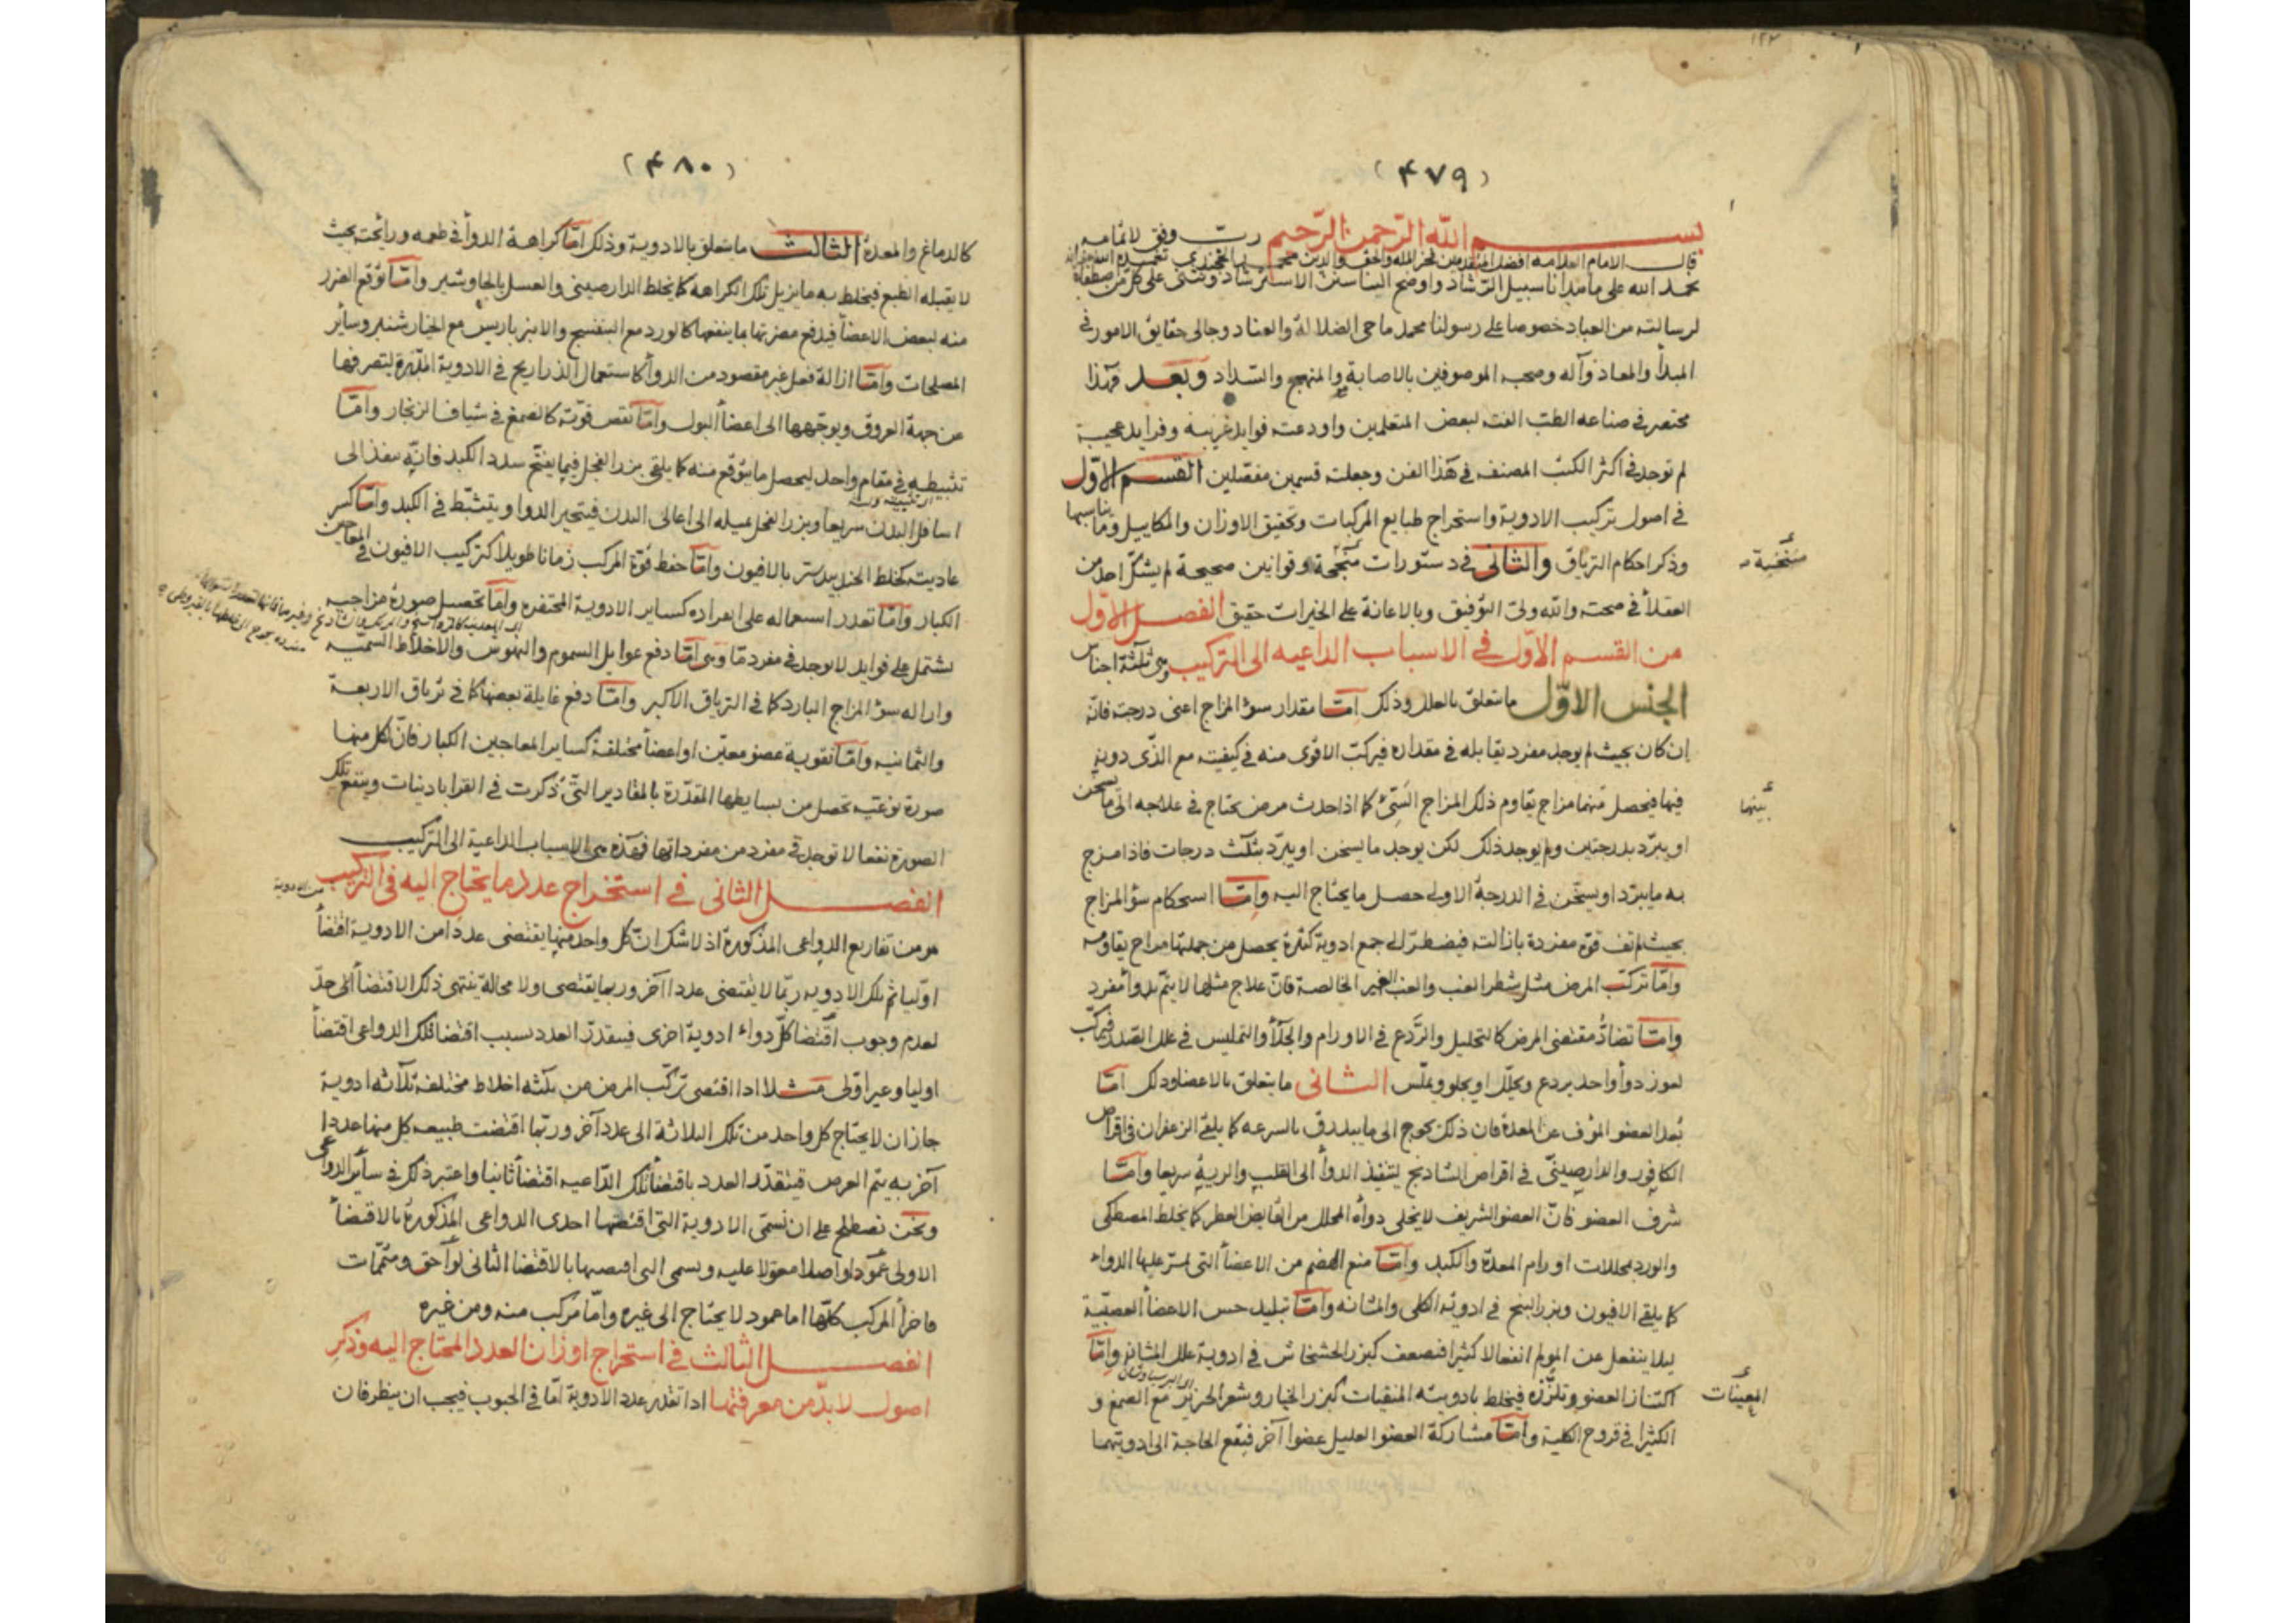 (۴۷۹)
بسم الله الرّحمن الرّحيم ربّ وفق لاتمامه
قال الامام العلامه افضل المتقدمين فخر المله والحق والدين محمد الخجندى تغمده الله
نحمد الله على ما هدانا سبيل الرّشاد واوضح الينا سنن الاسترشاد ونثنى على كل من اصطفاه
لرسالته من العباد خصوصا على رسولنا محمد ماحى الضلالة والعناد وجالى حقايق الامور فى
المبدأ والمعاد وآله وصحبه الموصوفين بالاصابة والمنهج والسّداد وبعد فهذا
مختصر فى صناعه الطب الفته لبعض المتعلمين واودعته فوايد غريبه وفرايد عجيبة
لم توجد فى اكثر الكتب المصنفه فى هذا الفن وجعلته قسمين مفصّلين القسم الاوّل
فى اصول تركيب الادوية واستخراج طبايع المركبات وتحقيق الاوزان والمكاييل وما يناسبها
وذكر احكام الترياق والثانى فى دستورات منجّحة وقوانين صحيحة لم يشكّ احد من
منتخبة
العقلأ فى صحته والله ولىّ التوفيق وبالاعانة على الخيرات حقيق الفصل الاوّل
من القسم الاوّل فى الاسباب الداعيه الى التركيب وهى ثلثة اجناس
الجنس الاوّل ما يتعلق بالعلل وذلك امّا مقدار سوء المزاج اعنى درجته فانّه
ان كان بحيث لم يوجد مفرد يقابله فى مقداره فيركب الاقوى منه فى كيفيته مع الذّى دونه
فيها فيحصل منهما مزاج يقاوم ذلك المزاج السّىّء كما اذا حدث مرض يحتاج فى علاجه الى ما يسخن
بينهما
او يبرّد بدرجتين ولم يوجد ذلك لكن يوجد ما يسخن او يبرّد بثلث درجات فاذا مزج
به ما يبرّد او يسخّن فى الدرجة الاولى حصل ما يحتاج اليه وامّا استحكام سوء المزاج
بحيث لم تف قوّة مفردة بازالته فيضطرّ الى جمع ادوية كثيرة يحصل من جملتها مزاج يقاومه
وامّا تركّب المرض مثل شطر الغب والغب الغير الخالصة فانّ علاج مثلها لا يتمّ بدوأ مفرد
وامّا تضادّ مقتضى المرض كالتحليل والرّدع فى الاورام والجلأ والتمليس فى علل الصّدر فيركّب
لعوز دوأ واحد يردع ويحلّل او يجلو ويملّس الثانى ما يتعلق بالاعضا وذلك امّا
بُعد العضو المؤف عن المعدة فان ذلك يحوج الى ما يبدرق بالسرعه كما يلقى الزعفران فى اقراص
الكافور والدارصينىّ فى اقراص الشادنج لتنفيذ الدوأ الى القلب والرية سريعا وامّا
شرف العضو فانّ العضو الشريف لا يخلى دوأه المحلل من القابض العطر كما يخلط المصطكى
والورد بمحللات اورام المعدة والكبد وامّا منع الهضم من الاعضأ التى يمرّ عليها الدواء
كما يلقى الافيون وبزر البنج فى ادوية الكلى والمثانه وامّا تبليد حس الاعضأ العصبيّة
ليلا ينفعل عن المولم انفعالا كثيرا فتضعف كبزر الخشخاش فى ادوية علل المثانه وامّا
اكتناز العضو وتلزّزه فيخلط بادويته المنقيات كبزر الخيار وشعر الخنزير مع الصمغ و
المعيّنات
الكثيرا فى قروح الكلية وامّا مشاركة العضو العليل عضوا آخر فتقع الحاجة الى ادويتهما
(۴۸۰)
كالدماغ والمعدة الثالث ما يتعلق بالادوية وذلك امّا كراهة الدوأ فى طعمه ورائحته بحيث
لا يقبله الطبع فيخلط به ما يزيل تلك الكراهه كما يخلط الدارصينى والعسل بالجاوشير وامّا توقّع الضرر
منه لبعض الاعضأ فيدفع مضرتها بما ينفعها كالورد مع البنفسج والانبرباريس مع الخيارشنبر وسأير
المصلحات وامّا ازالة فعل غير مقصود من الدوأ كاستعمال الذراريح فى الادوية المدّرة ليتصرفها
عن جهة العروق ويوجّهها الى اعضأ البول وامّا نقص قوّته كالصمغ فى شياف الزنجار وامّا
تثبيطه فى مقام واحد ليحصل ما يتوقع منه كما يلقى بزر الفجل فيما يفتح سدد الكبد فانّه ينفذ الى
اسافل البدن سريعا وبزر الفجل يميله الى اعالى البدن فيتحير الدوا ويتثبّط فى الكبد وامّا كسر
عاديته كخلط الجندبيدستر بالافيون وامّا حفظ قوّة المركب زمانا طويلا كتركيب الافيون فى المعاجين
الكبار وامّا تعذر استعماله على انفراده كساير الادوية المحتفرة وامّا تحصيل صورة مزاجيه
تشتمل على فوايد لا توجد فى مفرد مّا وهى امّا دفع غوايل السموم والنهوش والاخلاط السميّه
وازاله سوء المزاج البارد كما فى الترياق الاكبر وامّا دفع غايلة بعضها كما فى ترياق الاربعة
والثمانيه وامّا تقوية عضو معيّن او اعضأ مختلفة كساير المعاجين الكبار فانّ لكل منها
صورة نوعيّه تحصل من بسايطها المقدّرة بالمقادير التّى ذكرت فى القراباذينات وينفع تلك
الصورة نفعا لا توجد فى مفرد من مفرداتها فهذه هى الاسباب الداعية الى التركيب
الفصل الثانى فى استخراج عدد ما يحتاج اليه فى التركيب من الادوية
هو من تفاريع الدواعى المذكورة اذ لا شك انّ كل واحد منها يقتضى عددا من الادوية اقتضأ
اوليا ثم تلك الادويه ربّما لا يقتضى عددا آخر وربما يقتضى ولا محالة ينتهى ذلك الاقتضأ الى حدّ
لعدم وجوب اقتضا كلّ دواء ادوية اخرى فيتقدّر العدد بسبب اقتضا تلك الدواعى اقتضأ
اوليا وغير اوّلى مثلا اذا اقتضى تركّب المرض من ثلثه اخلاط مختلفة ثلاثه ادوية
جاز ان لا يحتاج كل واحد من تلك الثلاثة الى عدد آخر وربّما اقتضت طبيعه كل منها عددا
آخر به يتم الغرض فيتقدّر العدد باقتضأ تلك الدّاعيه اقتضأ ثانيا واعتبر ذلك فى سأير الدواعى
ونحن نصطلح على ان نسمّى الادوية التى اقتضتها احدى الدواعى المذكورة بالاقتضأ
الاولى عمودا واصلا معوّلا عليه ويسمى التى اقتضيها بالاقتضا الثانى لواحق ومتمّمات
فاجزأ المركب كلّها اما عمود لا يحتاج الى غيره وامّا مركب منه ومن غيره
الفصل الثالث فى استخراج اوزان العدد المحتاج اليه وذكر
اصول لا بدّ من معرفتها اذا تقدر عدد الادوية امّا فى الحبوب فيجب ان ينظر فان